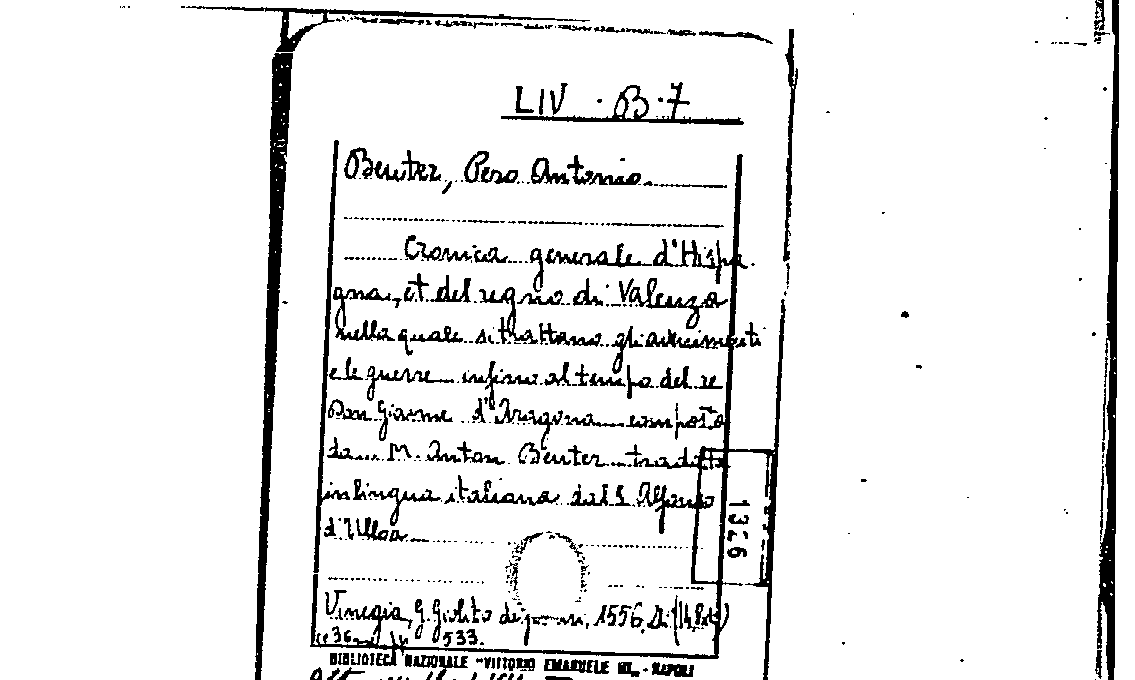 LIV · B · 7
Beuter, Pero Antonio.
Cronica generale d'Hispa
gna, et del regno di Valenza
nella quale si trattano gli avenimenti
e le guerre infino al tempo del re
Don Giame d'Aragona composto
da M. Anton Beuter tradotta
in lingua italiana dal S. Alfonso
d'Ulloa
1326
Vinegia, G. Giolito 1556,
533.
BIBLIOTECA NAZIONALE "VITTORIO EMANUELE III" - NAPOLI